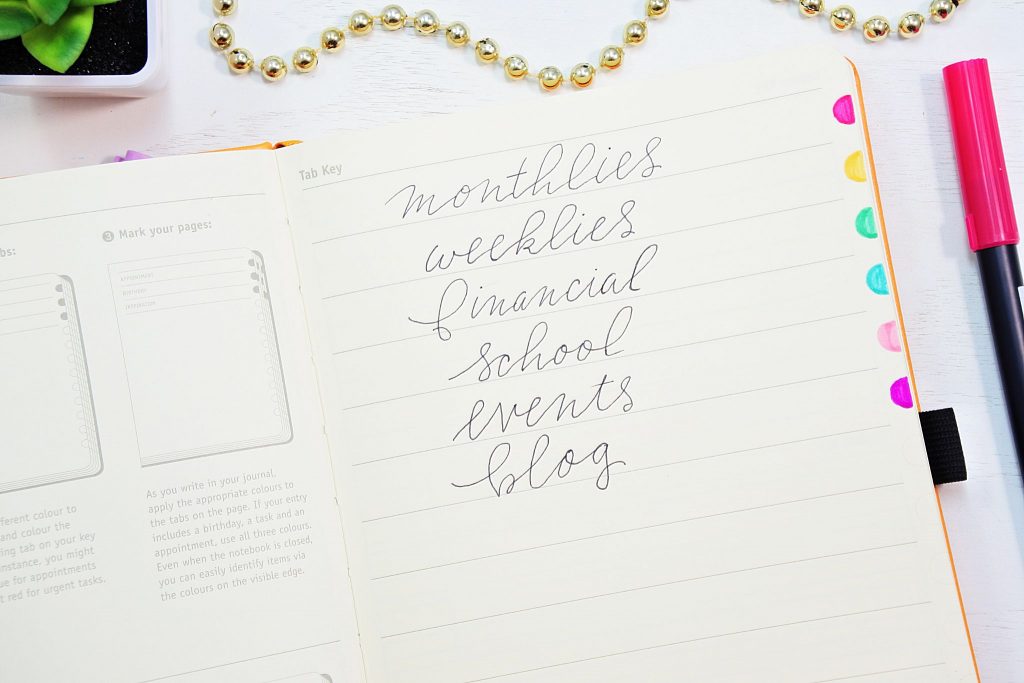 bs:
3 Mark your pages:
APPOINTMENT
BIRTHDAY
fferent colour to
and colour the
ng tab on your key
instance, you might
ue for appointments
t red for urgent tasks.
As you write in your journal,
apply the appropriate colours to
the tabs on the page. If your entry
includes a birthday, a task and an
appointment, use all three colours.
Even when the notebook is closed,
you can easily identify items via
the colours on the visible edge.
Tab Key
monthlies
weeklies
financial
school
events
blog